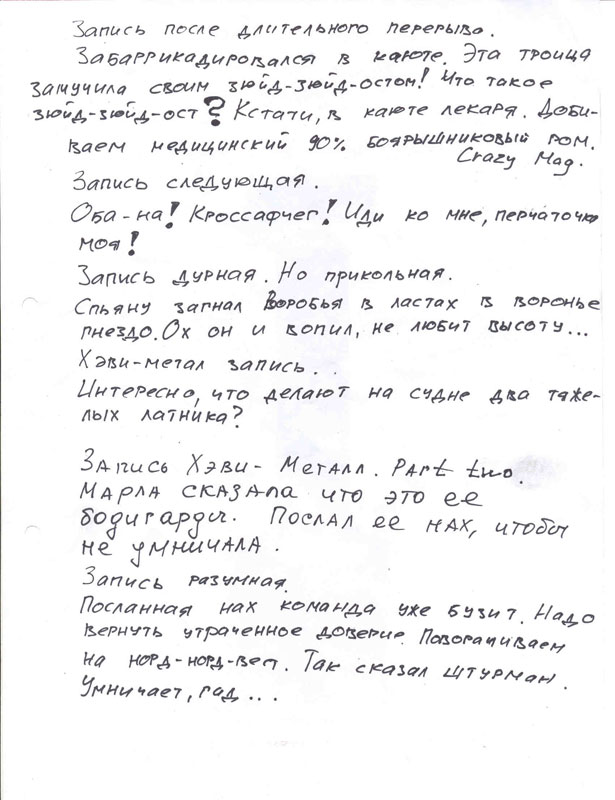 Запись после длительного перерыва.
Забаррикадировался в каюте. Эта троица
замучила своим зюйд-зюйд-остом! Что такое
зюйд-зюйд-ост? Кстати, в каюте лекаря. Доби-
ваем медицинский 90% боярышниковый ром.
Crazy Mag.
Запись следующая.
Оба-на! Кроссафчег! Иди ко мне, перчаточка
моя!
Запись дурная. Но прикольная.
Спьяну загнал Воробья в ластах в воронье
гнездо. Ох он и вопил, не любит высоту...
Хэви-метал запись...
Интересно, что делают на судне два тяже-
лых латника?
Запись Хэви-Металл. Part two.
Марла сказала что это ее
бодигарды. Послал ее нах, чтобы
не умничала.
Запись разумная.
Посланная нах команда уже бузит. Надо
вернуть утраченное доверие. Поворачиваем
на норд-норд-вест. Так сказал штурман.
Умничает, гад...